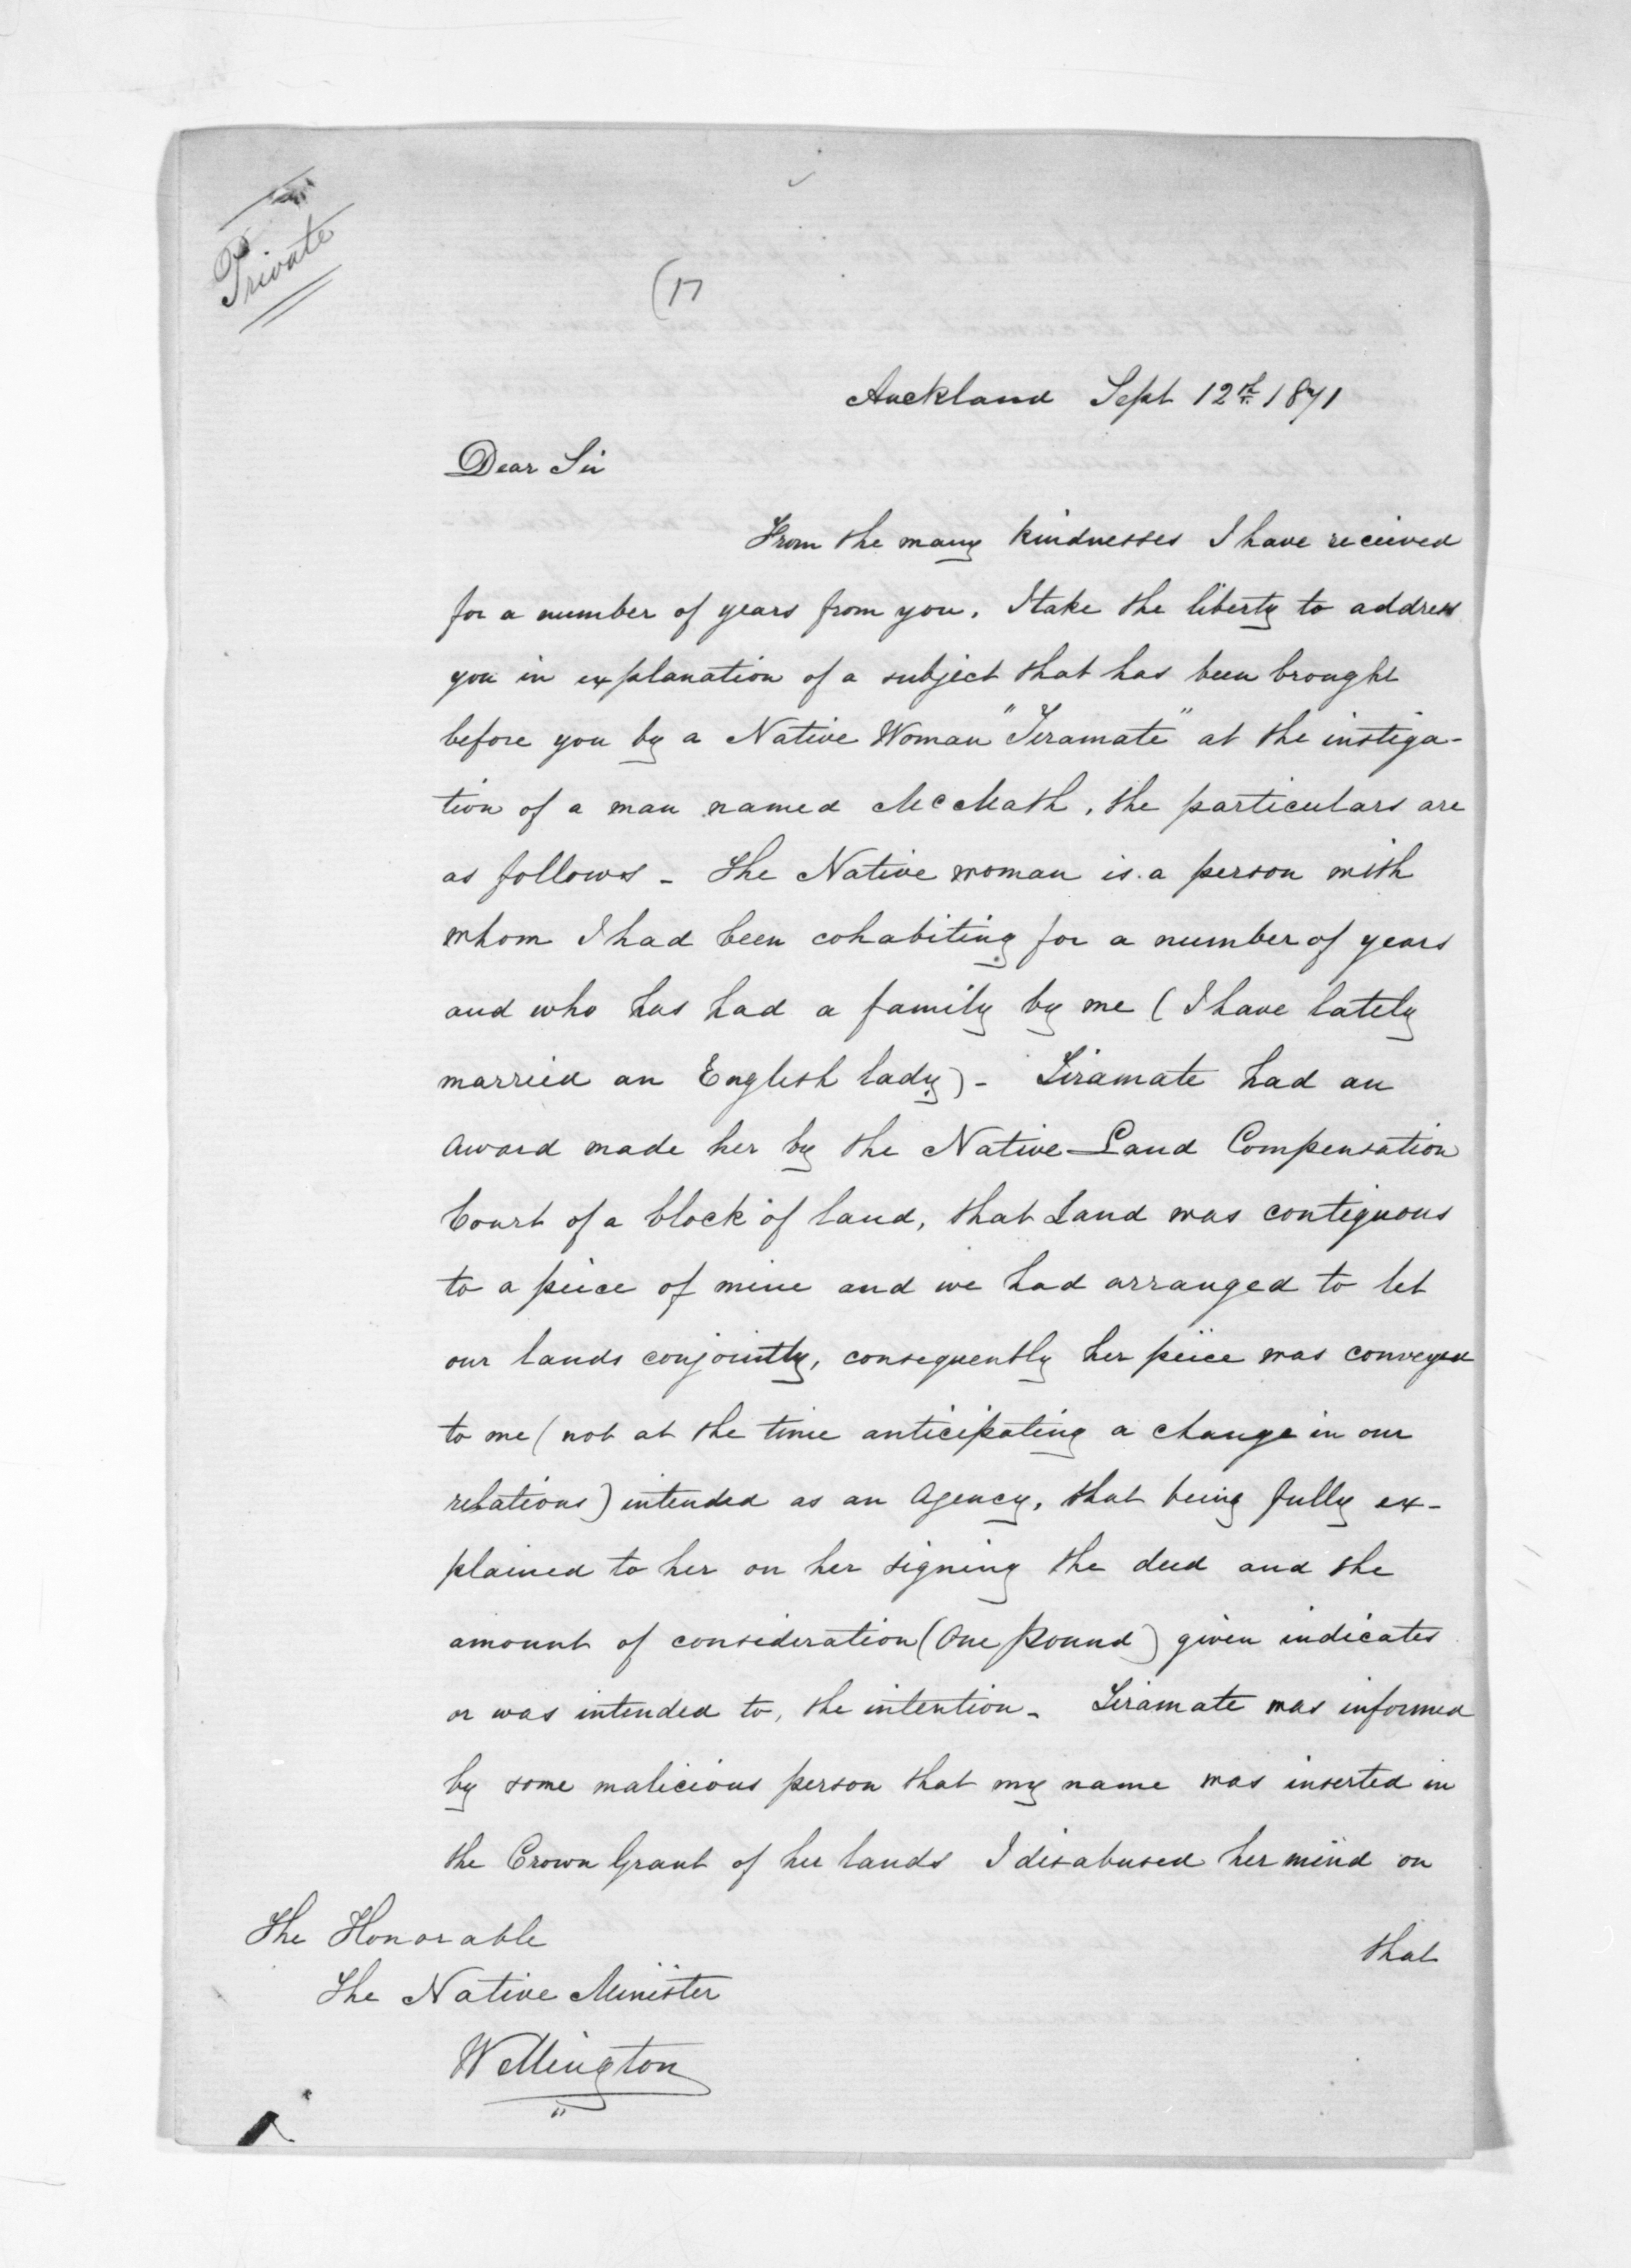 Private
(17
Auckland Sept 12th 1871
Dear Sir
From the many kindnesses I have received
for a number of years from you, I take the liberty to address
you in explanation of a subject that has been brought
before you by a Native Woman "Teramate" at the instiga-
tion of a man named McMath, the particulars are
as follows - The Native woman is a person with
whom I had been cohabiting for a number of years
and who has had a family by me (I have lately
married an English lady) - Teramate had an
Award made her by the Native Land Compensation
Court of a block of land, that Land was contiguous
to a peice of mine and we had arranged to let
our lands conjointly, consequently her peice was conveyed
to me (not at the time anticipating a change in our
relations) intended as an Agency, that being fully ex-
plained to her on her signing the deed and the
amount of consideration (One Pound) given indicates
or was intended to, the intention - Teramate was informed
by some malicious person that my name was inserted in
the Crown Grant of her lands I disabused her mind on
that
The Honorable
The Native Minister
Wellington